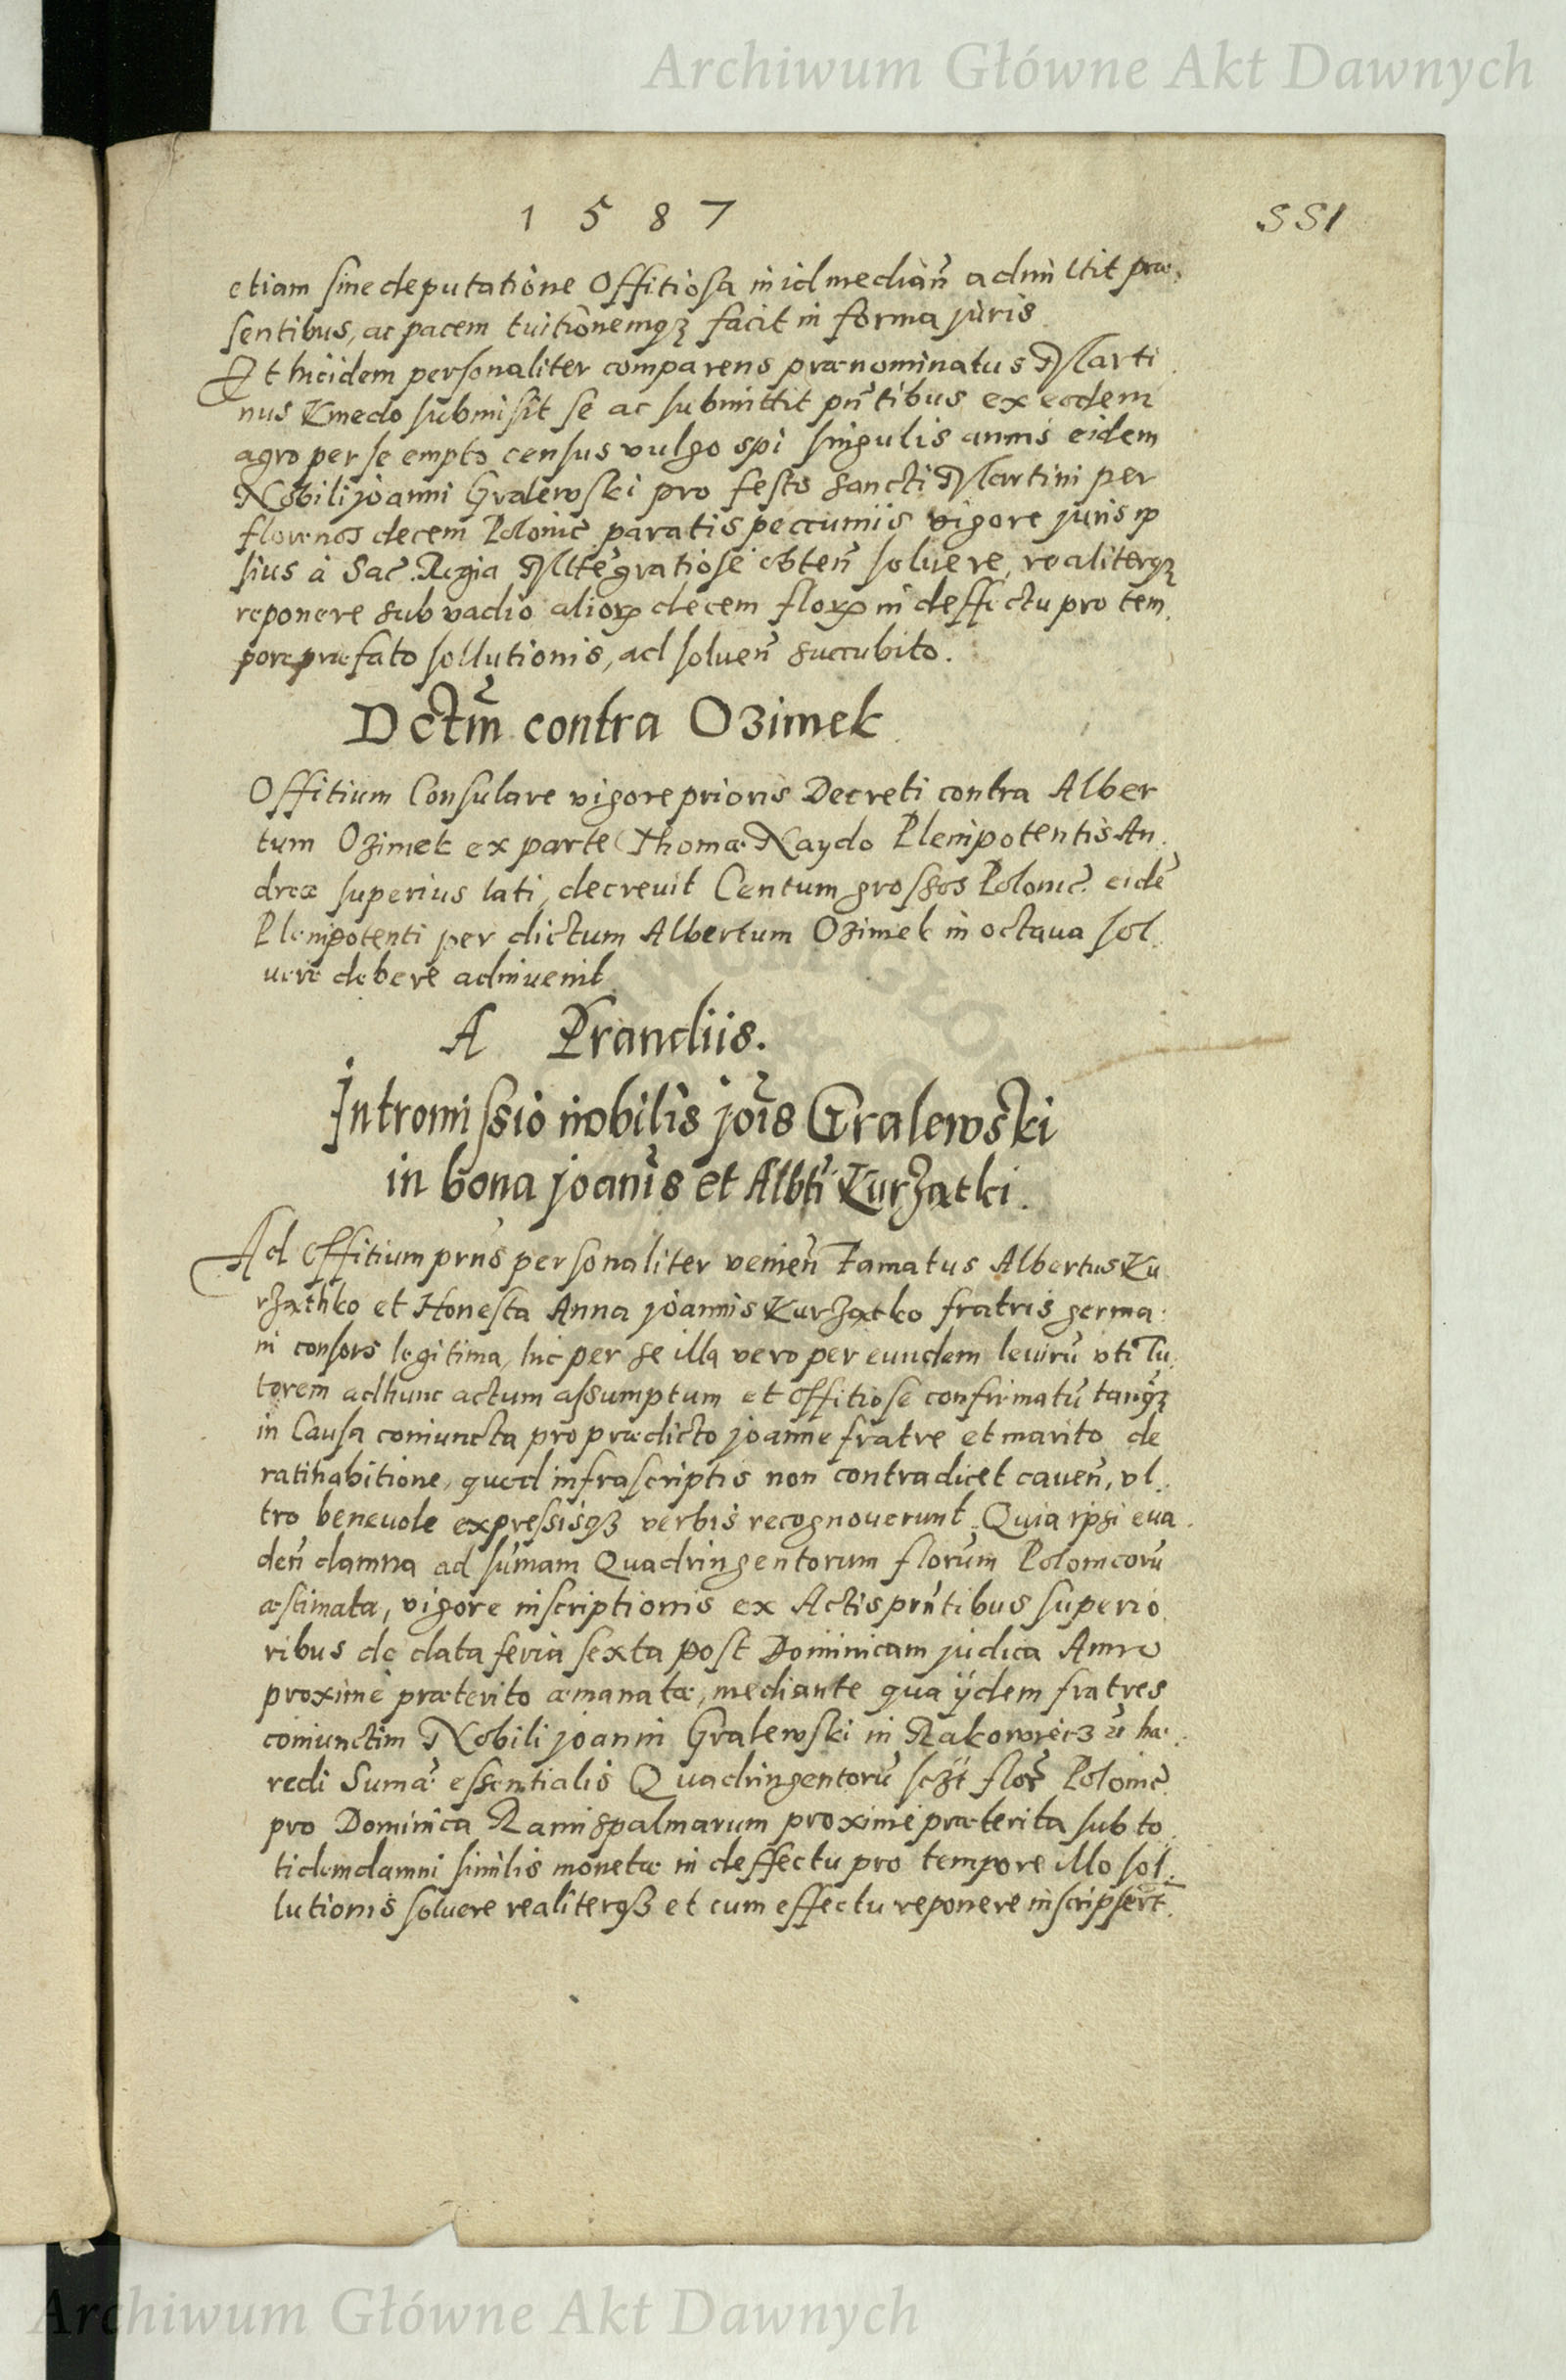 Archiwum Główne Akt Dawnych
1 5 8 7
551
etiam sine deputatione Offitiosa in id median̄ admittit præ.
sentibus, ac pacem tuitionemqȝ facit in forma juris
Et hic idem personaliter comparens prænominatus Marti
nus Kmedo submisit se ac submittit pn̄tibus ex eodem
agro per se empto census vulgo spi singulis annis eidem
Nobili joanni Gralewski pro festo Sancti Martini per
florenos decem Polonic̄ paratis peccuniis vigore juris ip
sius à Sac̄. Regia Mtte gratiose obten̄ soluere, realiterqȝ
reponere sub vadio alioꝝ decem floꝝ in deffectu pro tem.
pore præfato sollutionis, ad soluen̄ succubito.
Dctm̄ contra Ozimek
Offitium Consulare vigore prioris Decreti contra Alber
tum Ozimek ex parte Thomæ Naydo Plenipotentis An.
dreæ superius lati, decreuit Centum grossos Polonic̄. eidē
Plenipotenti per dictum Albertum Ozimek in octaua sol.
uere debere adinuenit
A Prandiis.
Intromissio nobilis jōis Gralewski
in bona joan̄is et Albti Kurzatki.
Ad Offitium prn̄s personaliter venien̄ Famatus Albertus Ku
rzathko et Honesta Anna joannis Kurzatko fratris germa.
ni consors legitima, hic per se illa vero per eundem leuirū vti Tu.
torem ad hunc actum assumptum et offitiose confirmatū tanqȝ
in Causa coniuncta pro prædicto joanne fratre et marito de
ratihabitione, quod infrascriptis non contradicet cauen̄, vl.
tro beneuole expressisqȝ verbis recognouerunt. Quia ipsi eua.
den̄ damna ad sum̄am Quadringentorum florūm Polonicorū
æstimata, vigore inscriptionis ex Actis prn̄tibus superio.
ribus de data feria sexta post Dominicam judica Anno
proxime præterito æmanatæ, mediante qua ijdem fratres
coniunctim Nobili joanni Gralewski in Rakowiecz hæ.
redi Sumā essentialis Quadringentorū sczt flor̄ Polonic̄
pro Dominica Ramispalmarum proxime præterita sub to.
tidem damni similis monetæ in deffectu pro tempore illo sol.
lutionis soluere realiterqȝ et cum effectu reponere inscripser̄t.
Archiwum Główne Akt Dawnych